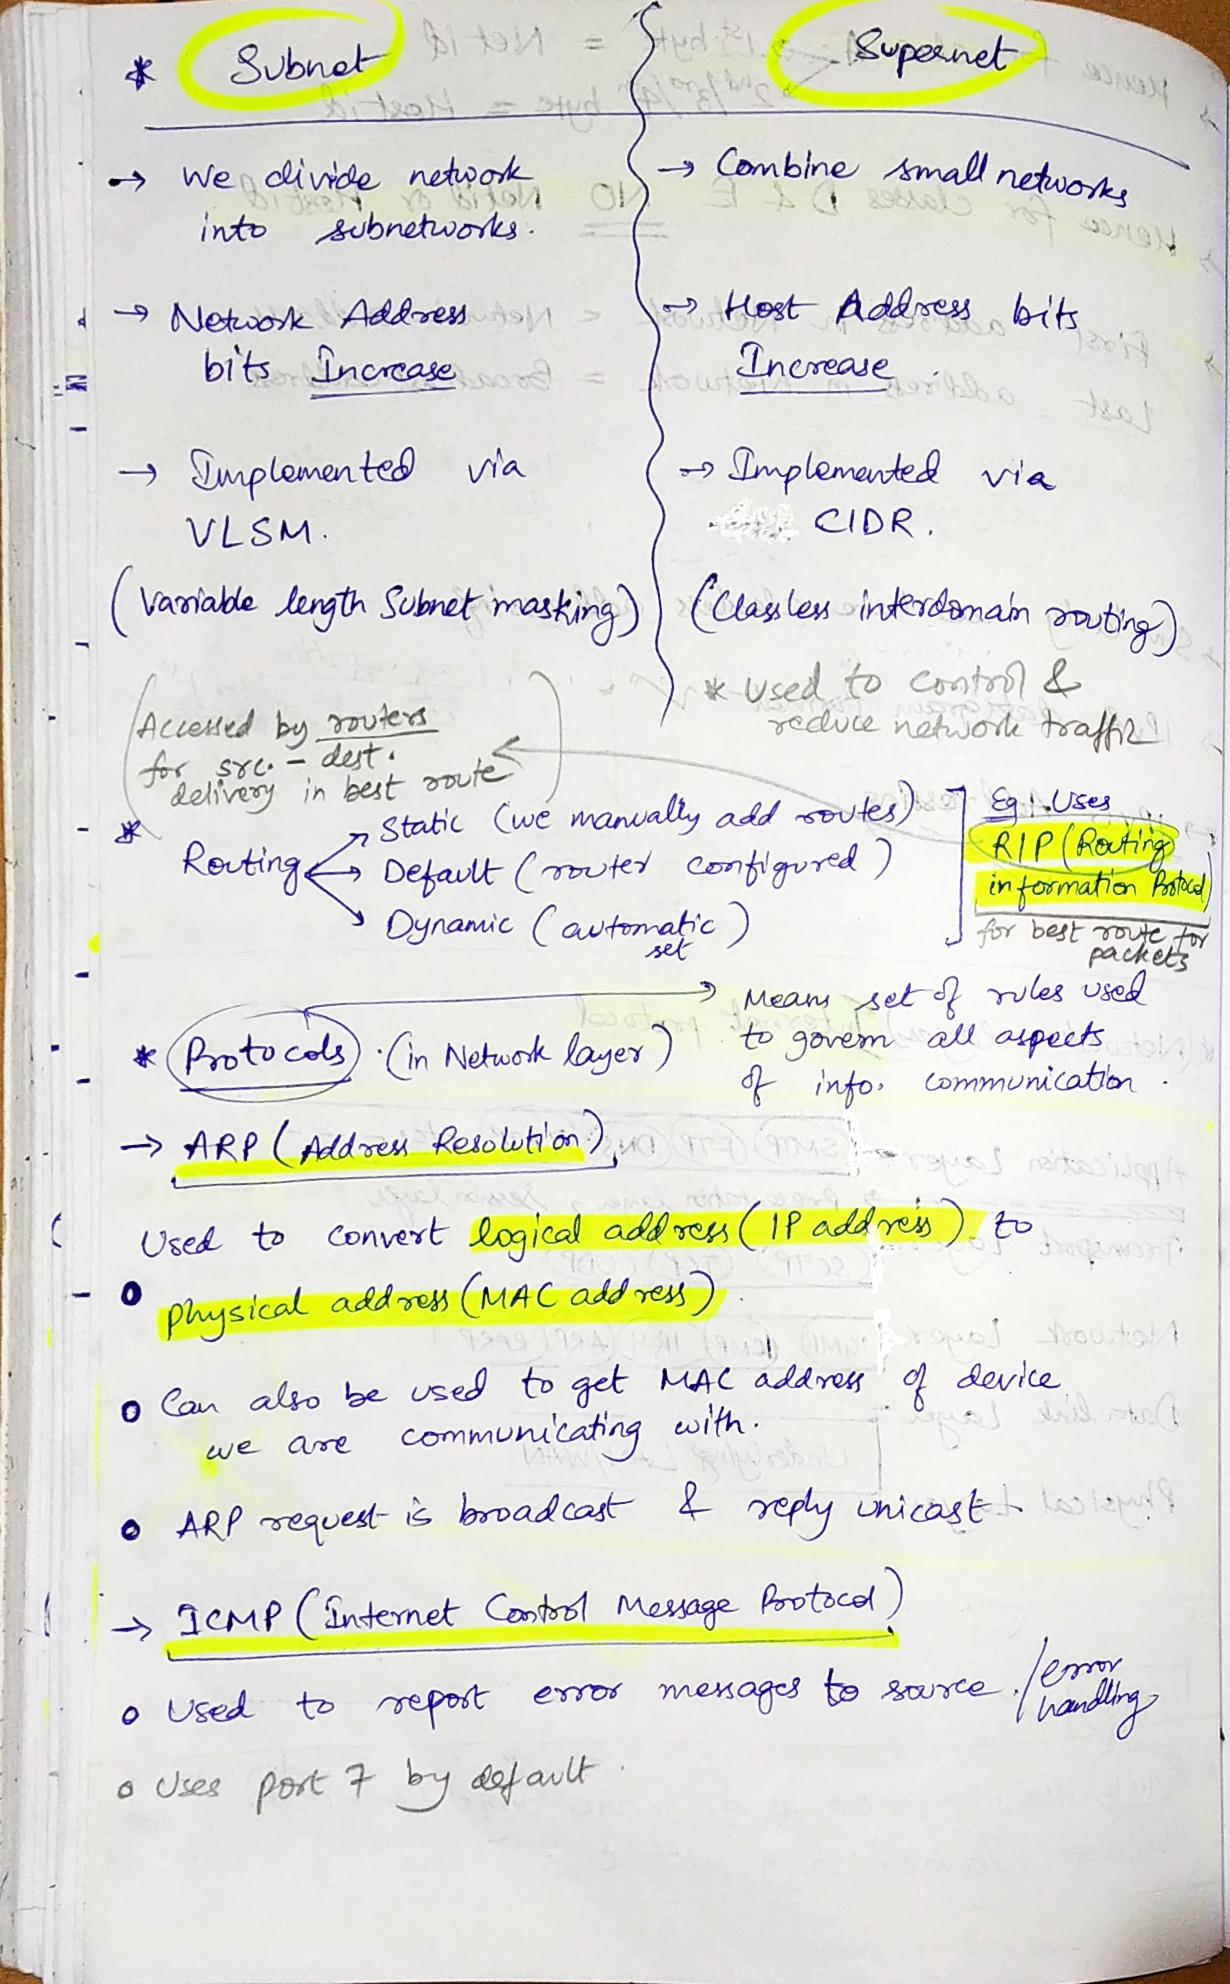 * Subnet
Supernet
→ We divide network
into subnetworks.
→ Combine small networks
→ Network Address
bits Increase
→ Host Address bits
Increase
→ Implemented via
VLSM.
(Variable length Subnet masking)
→ Implemented via
CIDR.
(Classless interdomain routing)
* Used to control &
reduce network traffic
(Accessed by routers
for src. - dest.
delivery in best route)
* Routing
→ Static (we manually add routes)
→ Default (router configured)
→ Dynamic (automatic
set)
Eg: Uses
RIP (Routing
information Protocol)
for best route for
packets
* Protocols . (in Network layer)
→ Means set of rules used
to govern all aspects
of info. communication .
→ ARP (Address Resolution)
Used to convert logical address (IP address) to
o physical address (MAC address)
o Can also be used to get MAC address of device
we are communicating with.
o ARP request is broadcast & reply unicast.
→ ICMP (Internet Control Message Protocol)
o Used to report error messages to source. /error
handling
o Uses port 7 by default.